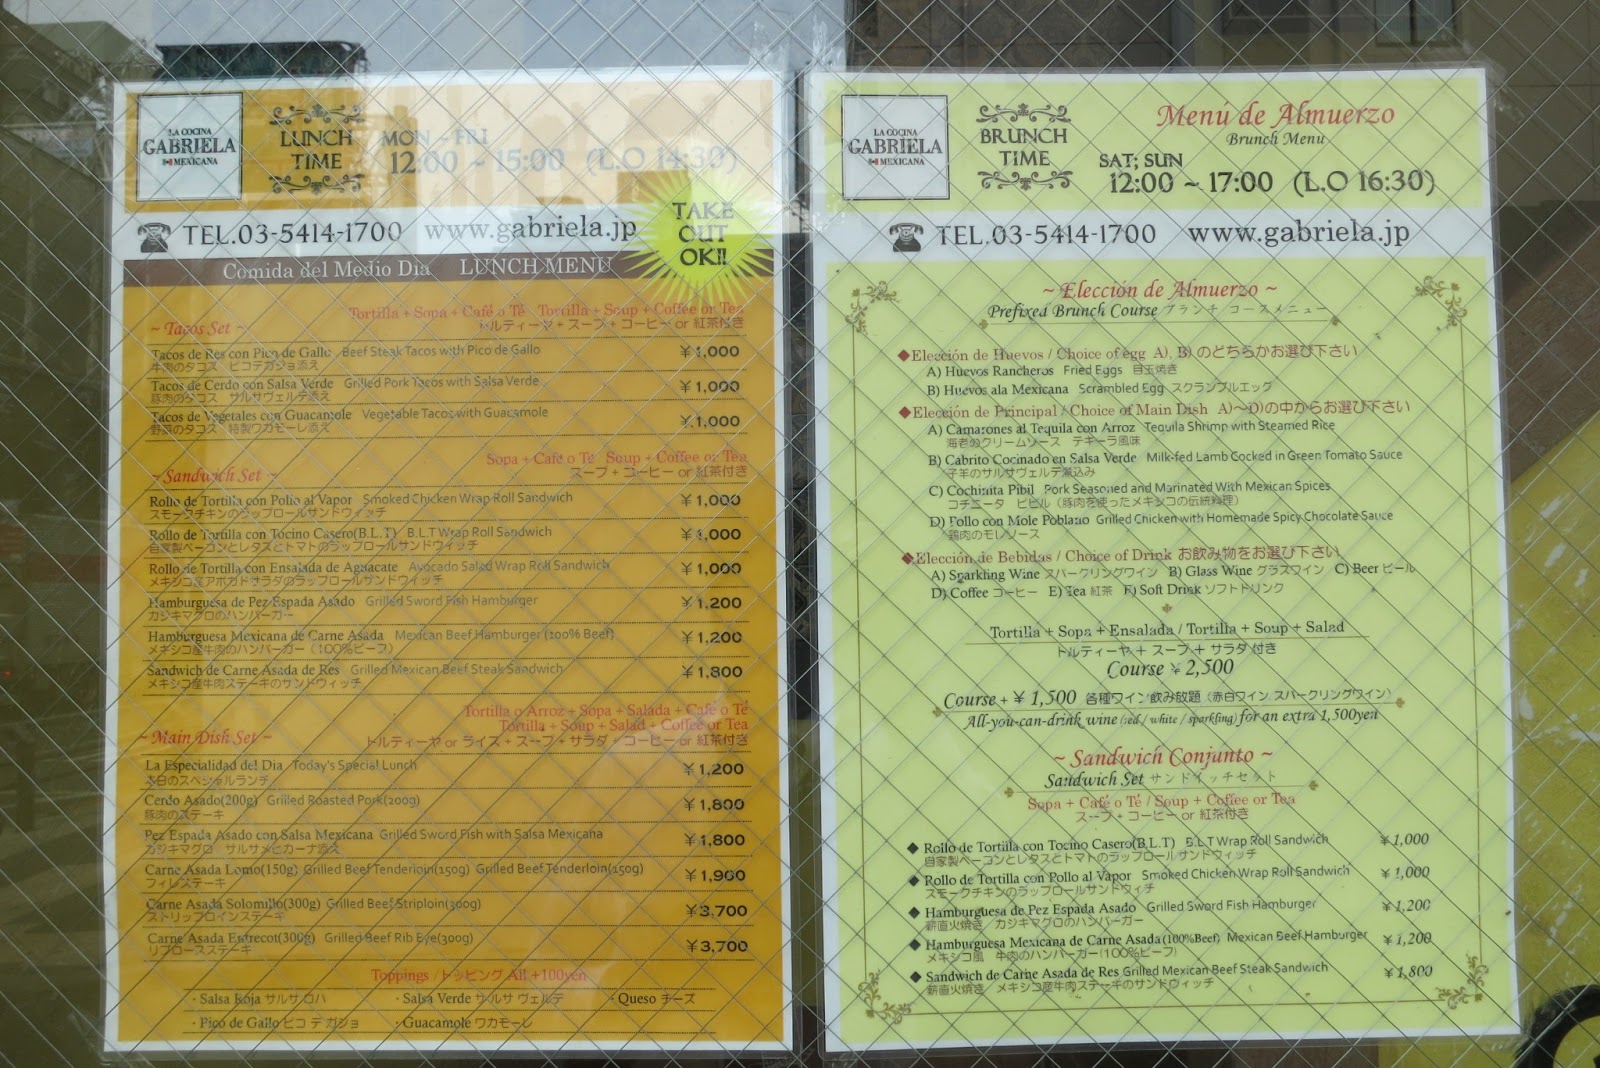 LA COCINA
GABRIELA
MEXICANA
LUNCH
TIME
MON ~ FRI
12:00 ~ 15:00 (L.O 14:30)
TEL.03-5414-1700 www.gabriela.jp
TAKE
OUT
OK!!
Comida del Medio Dia LUNCH MENU
Tortilla + Sopa + Café o Té Tortilla + Soup + Coffee or Tea
~ Tacos Set ~ トルティーヤ + スープ + コーヒー or 紅茶付き
Tacos de Res con Pico de Gallo Beef Steak Tacos with Pico de Gallo ¥1,000
牛肉のタコス ピコデガジョ添え
Tacos de Cerdo con Salsa Verde Grilled Pork Tacos with Salsa Verde ¥1,000
豚肉のタコス サルサヴェルデ添え
Tacos de Vegetales con Guacamole Vegetable Tacos with Guacamole ¥1,000
野菜のタコス 特製ワカモーレ添え
Sopa + Café o Té Soup + Coffee or Tea
~ Sandwich Set ~ スープ + コーヒー or 紅茶付き
Rollo de Tortilla con Pollo al Vapor Smoked Chicken Wrap Roll Sandwich ¥1,000
スモークチキンのラップロールサンドウィッチ
Rollo de Tortilla con Tocino Casero(B.L.T) B.L.T Wrap Roll Sandwich ¥1,000
自家製ベーコンとレタスとトマトのラップロールサンドウィッチ
Rollo de Tortilla con Ensalada de Aguacate Avocado Salad Wrap Roll Sandwich ¥1,000
メキシコ産アボカドサラダのラップロールサンドウィッチ
Hamburguesa de Pez Espada Asado Grilled Sword Fish Hamburger ¥1,200
カジキマグロのハンバーガー
Hamburguesa Mexicana de Carne Asada Mexican Beef Hamburger (100% Beef) ¥1,200
メキシコ産牛肉のハンバーガー（100%ビーフ）
Sandwich de Carne Asada de Res Grilled Mexican Beef Steak Sandwich ¥1,800
メキシコ産牛肉ステーキのサンドウィッチ
Tortilla o Arroz + Sopa + Salada + Café o Té
Tortilla + Soup + Salad + Coffee or Tea
~ Main Dish Set ~ トルティーヤ or ライス + スープ + サラダ + コーヒー or 紅茶付き
La Especialidad del Dia Today's Special Lunch ¥1,200
本日のスペシャルランチ
Cerdo Asado(200g) Grilled Roasted Pork(200g) ¥1,800
豚肉のステーキ
Pez Espada Asado con Salsa Mexicana Grilled Sword Fish with Salsa Mexicana ¥1,800
カジキマグロ サルサメヒカーナ添え
Carne Asada Lomo(150g) Grilled Beef Tenderloin(150g) Grilled Beef Tenderloin(150g) ¥1,900
フィレステーキ
Carne Asada Solomillo(300g) Grilled Beef Striploin(300g) ¥3,700
ストリップロインステーキ
Carne Asada Entrecot(300g) Grilled Beef Rib Eye(300g) ¥3,700
リブロースステーキ
Toppings / トッピング All +100yen
・Salsa Roja サルサ ロハ ・Salsa Verde サルサ ヴェルデ ・Queso チーズ
・Pico de Gallo ピコ デ ガジョ ・Guacamole ワカモーレ
LA COCINA
GABRIELA
MEXICANA
BRUNCH
TIME
Menú de Almuerzo
Brunch Menu
SAT; SUN
12:00 ~ 17:00 (L.O 16:30)
TEL.03-5414-1700 www.gabriela.jp
~ Elección de Almuerzo ~
Prefixed Brunch Course ブランチ コースメニュー
◆Elección de Huevos / Choice of egg A), B) のどちらかお選び下さい
A) Huevos Rancheros Fried Eggs 目玉焼き
B) Huevos ala Mexicana Scrambled Egg スクランブルエッグ
◆Elección de Principal / Choice of Main Dish A)～D)の中からお選び下さい
A) Camarones al Tequila con Arroz Tequila Shrimp with Steamed Rice
海老のクリームソース テキーラ風味
B) Cabrito Cocinado en Salsa Verde Milk-fed Lamb Cocked in Green Tomato Sauce
子羊のサルサヴェルデ煮込み
C) Cochinita Pibil Pork Seasoned and Marinated With Mexican Spices
コチニータ ピビル（豚肉を使ったメキシコの伝統料理）
D) Pollo con Mole Poblano Grilled Chicken with Homemade Spicy Chocolate Sauce
鶏肉のモレソース
◆Elección de Bebidas / Choice of Drink お飲み物をお選び下さい
A) Sparkling Wine スパークリングワイン B) Glass Wine グラスワイン C) Beer ビール
D) Coffee コーヒー E) Tea 紅茶 F) Soft Drink ソフトドリンク
Tortilla + Sopa + Ensalada / Tortilla + Soup + Salad
トルティーヤ + スープ + サラダ 付き
Course ¥ 2,500
Course + ¥ 1,500 各種ワイン飲み放題（赤白ワイン/スパークリングワイン）
All-you-can-drink wine (red / white / sparkling) for an extra 1,500yen
~ Sandwich Conjunto ~
Sandwich Set サンドイッチセット
Sopa + Café o Té / Soup + Coffee or Tea
スープ + コーヒー or 紅茶付き
◆ Rollo de Tortilla con Tocino Casero(B.L.T) B.L.T Wrap Roll Sandwich ¥1,000
自家製ベーコンとレタスとトマトのラップロールサンドウィッチ
◆ Rollo de Tortilla con Pollo al Vapor Smoked Chicken Wrap Roll Sandwich ¥1,000
スモークチキンのラップロールサンドウィチ
◆ Hamburguesa de Pez Espada Asado Grilled Sword Fish Hamburger ¥1,200
薪直火焼き カジキマグロのハンバーガー
◆ Hamburguesa Mexicana de Carne Asada(100%Beef) Mexican Beef Hamburger ¥1,200
メキシコ風 牛肉のハンバーガー(100%ビーフ)
◆ Sandwich de Carne Asada de Res Grilled Mexican Beef Steak Sandwich ¥1,800
薪直火焼き メキシコ産牛肉ステーキのサンドウィッチ